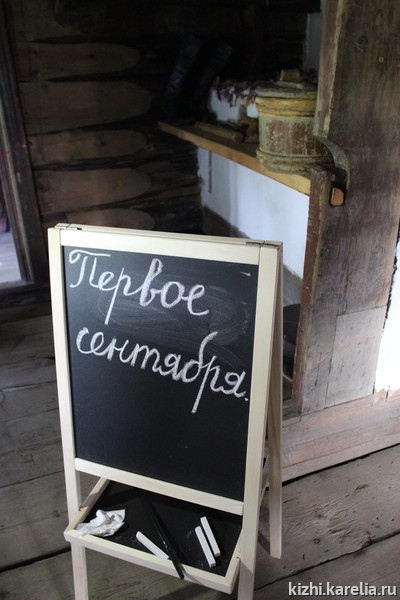 Первое
сентября.
kizhi.karelia.ru